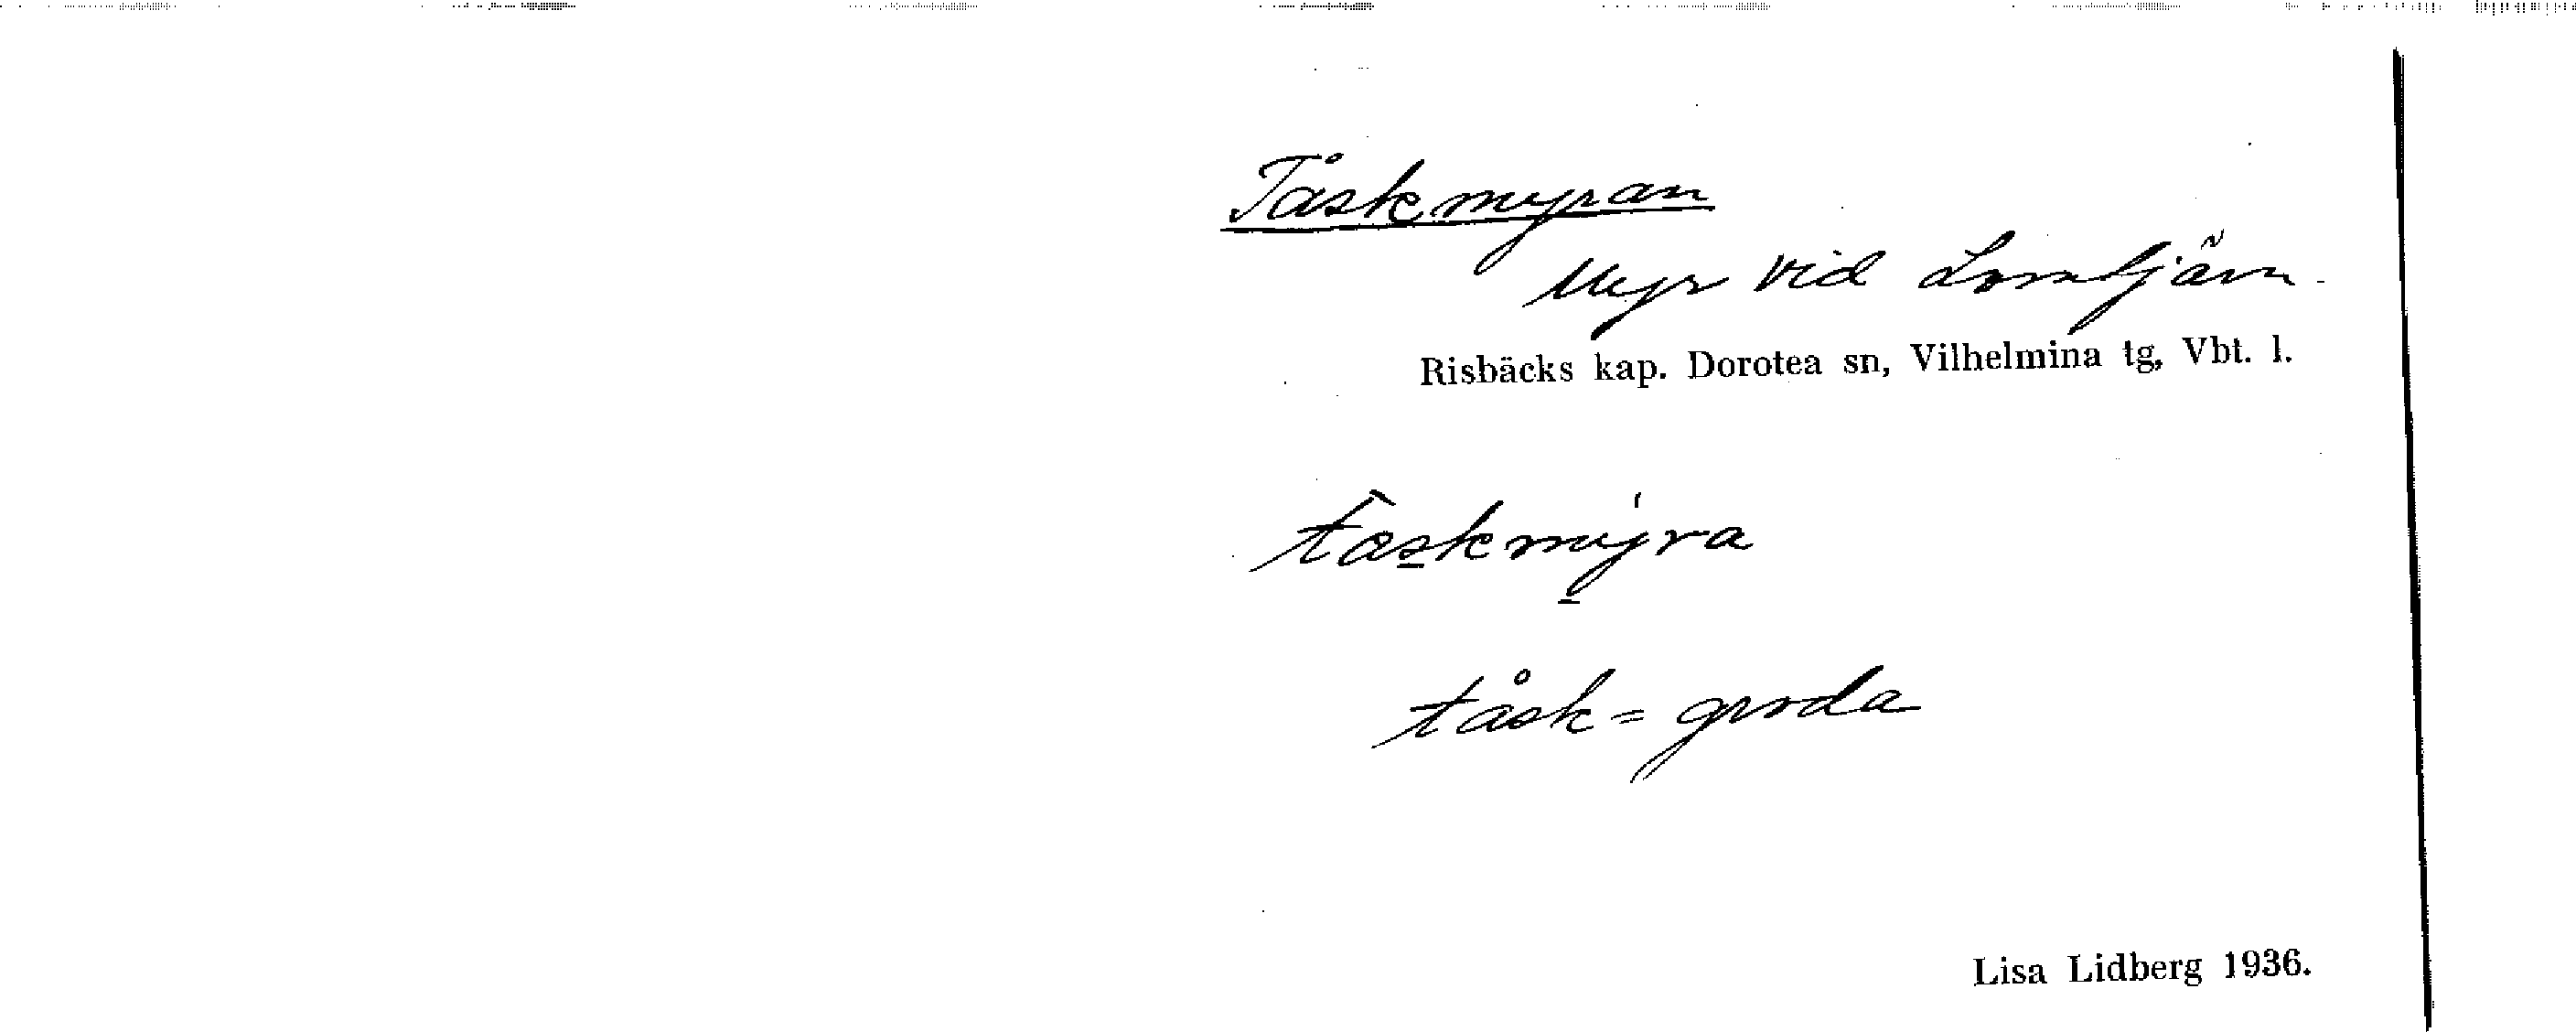 Tåskmyran
Myr vid Lomtjärn.
Risbäcks kap. Dorotea sn, Vilhelmina tg, Vbt. l.
tåsk = groda
Lisa Lidberg 1936.